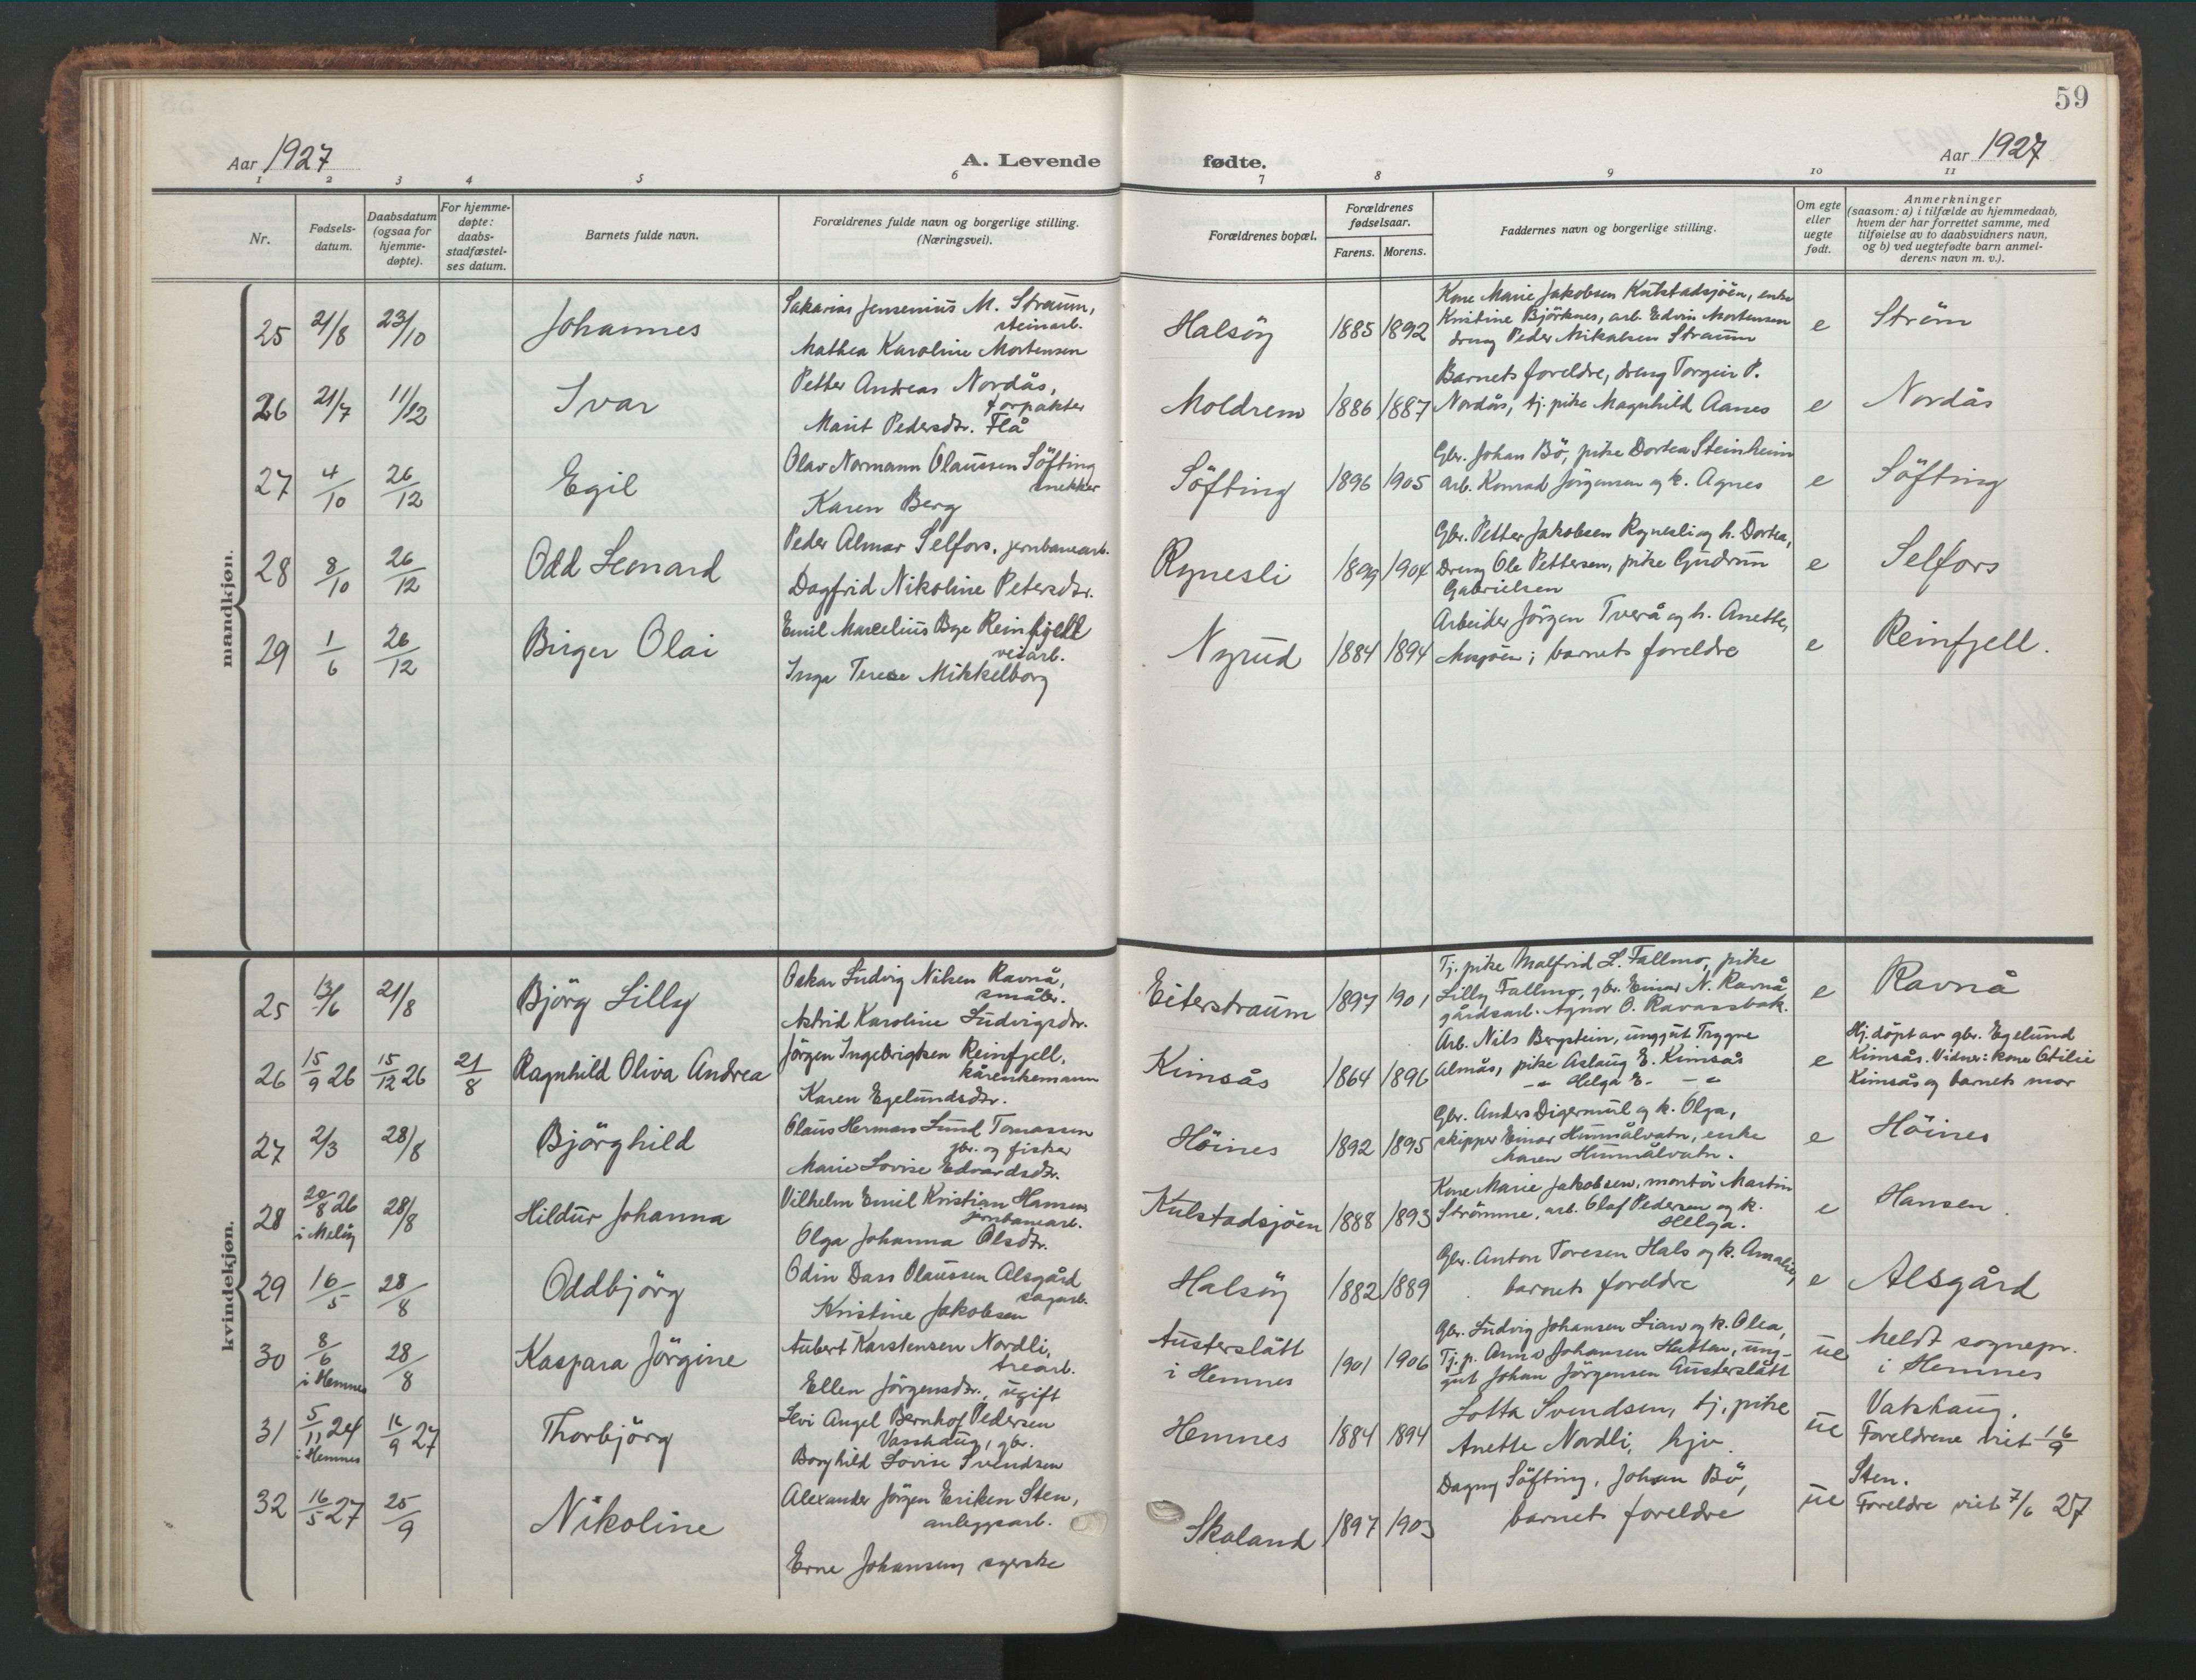 59
Aar 1927
A. Levende
fødte.
Aar 1927
1 2 3 4 5 6 7 8 9 10 11
Nr.
Fødselsdatum.
Daabsdatum (ogsaa for hjemmedøpte).
For hjemmedøpte: daabsstadfæstelses datum.
Barnets fulde navn.
Forældrenes fulde navn og borgerlige stilling. (Næringsvei).
Forældrenes bopæl.
Forældrenes fødselsaar.
Farens. Morens.
Faddernes navn og borgerlige stilling.
Om egte eller uegte født.
Anmerkninger
(saasom: a) i tilfælde av hjemmedaab,
hvem der har forrettet samme, med
tilføielse av to daabsvidners navn,
og b) ved uegtefødte barn anmelderens navn m. v.).
mandkjøn.
25 21/8 23/10 Johannes
Sakarias Jensenius M. Straum,
steinarb.
Mathea Karoline Mortensen
Halsöy 1885 1892
Kone Marie Jakobsen Kulstadsjöen, enke
Kristine Björknes, arb. Edvin Mortensen
dreng Peder Mikalsen Straum
e Ström
26 21/7 11/12 Ivar
Petter Andreas Nordås,
forpakter
Marit Pedersdtr. Flå
Moldrem 1886 1887
Barnets foreldre, dreng Torgeir P.
Nordås, tj. pike Magnhild Aanes
e Nordås
27 4/10 26/12 Egil
Olav Normann Olaussen Söfting
snekker
Karen Berg
Söfting 1896 1905
Gbr. Johan Bö, pike Dortea Steinheim
arb. Konrad Jörgensen og k. Agnes
e Söfting
28 8/10 26/12 Odd Leonard
Peder Almar Selfors, jernbanearb.
Dagfrid Nikoline Petersdtr.
Rynesli 1899 1904
Gbr. Petter Jakobsen Rynesli og h. Dortea,
Dreng Ole Pettersen, pike Gudrun
Gabrielsen
e Selfors
29 1/6 26/12 Birger Olai
Emil Marcelius Bye Reinfjell
veiarb.
Inga Terese Mikkelborg
Nyrud 1884 1894
Arbeider Jörgen Tverå og h. Anette,
Mosjöen; barnets foreldre
e Reinfjell.
kvindekjøn.
25 13/6 21/8 Björg Lilly
Oskar Ludvig Nilsen Ravnå,
småbr.
Astrid Karoline Ludvigsdtr.
Eiterstraum 1897 1901
Tj. pike Malfrid L. Fallmo, pike
Lilly Fallmo, gbr. Einar N. Ravnå
gårdsarb. Agnar O. Ravassbak.
e Ravnå
26 15/9 26 15/12 26 21/8 Ragnhild Oliva Andrea
Jörgen Ingebrigtsen Reinfjell,
kårenkemann
Karen Egelundsdtr.
Kimsås 1864 1896
Arb. Nils Bergstein, unggut Trygve
Almås, pike Aslaug E. Kimsås
-"- Helga E. -"-
e
Hj. döpt av gbr. Egelund
Kimsås. Vidner: kone Otilie
Kimsås og barnets mor
27 2/3 28/8 Björghild
Olaus Herman Lund Tomassen
gbr. og fisker
Marie Lovise Edvardsdtr.
Höines 1892 1895
Gbr. Anders Digermul og k. Olga,
skipper Einar Hummålvatn, enke
Maren Hummålvatn.
e Höines
28 20/8 26 i Meløy 28/8 Hildur Johanna
Vilhelm Emil Kristian Hansen
jernbanearb.
Olga Johanna Olsdtr.
Kulstadsjöen 1888 1893
Kone Marie Jakobsen, montör Martin
Strömme, arb. Olaf Pedersen og k.
Helga.
e Hansen.
29 16/5 28/8 Oddbjörg
Odin Dass Olaussen Alsgård
sagarb.
Kristine Jakobsen
Halsöy 1882 1889
Gbr. Anton Toresen Hals og k. Amalie,
barnets foreldre
e Alsgård
30 8/6 i Hemnes 28/8 Kaspara Jörgine
Aubert Karstensen Nordli,
trearb.
Ellen Jörgensdtr., ugift
Austerslått
i Hemnes 1901 1906
Gbr. Ludvig Johansen og k. Olea,
Tj. p. Anna Johansen, unggut Johan Jörgensen Austerslått
ue
Meldt sognepr.
i Hemnes
31 5/11 24 i Hemnes 16/9 27 Thorbjörg
Levi Angel Bernhof Pedersen
Vasshaug, gbr.
Borghild Lovise Svendsen
Hemnes 1884 1894
Lotta Svendsen, tj. pike
Anette Nordli, hjv.
ue
Vatshaug.
Foreldrene viet 16/9
32 16/5 27 25/9 Nikoline
Alexander Jörgen Eriksen Sten,
anleggsarb.
Erne Johansen, syerske
Skaland 1897 1903
Dagny Söfting, Johan Bö,
barnets foreldre
ue
Sten.
Foreldre viet 7/6 27